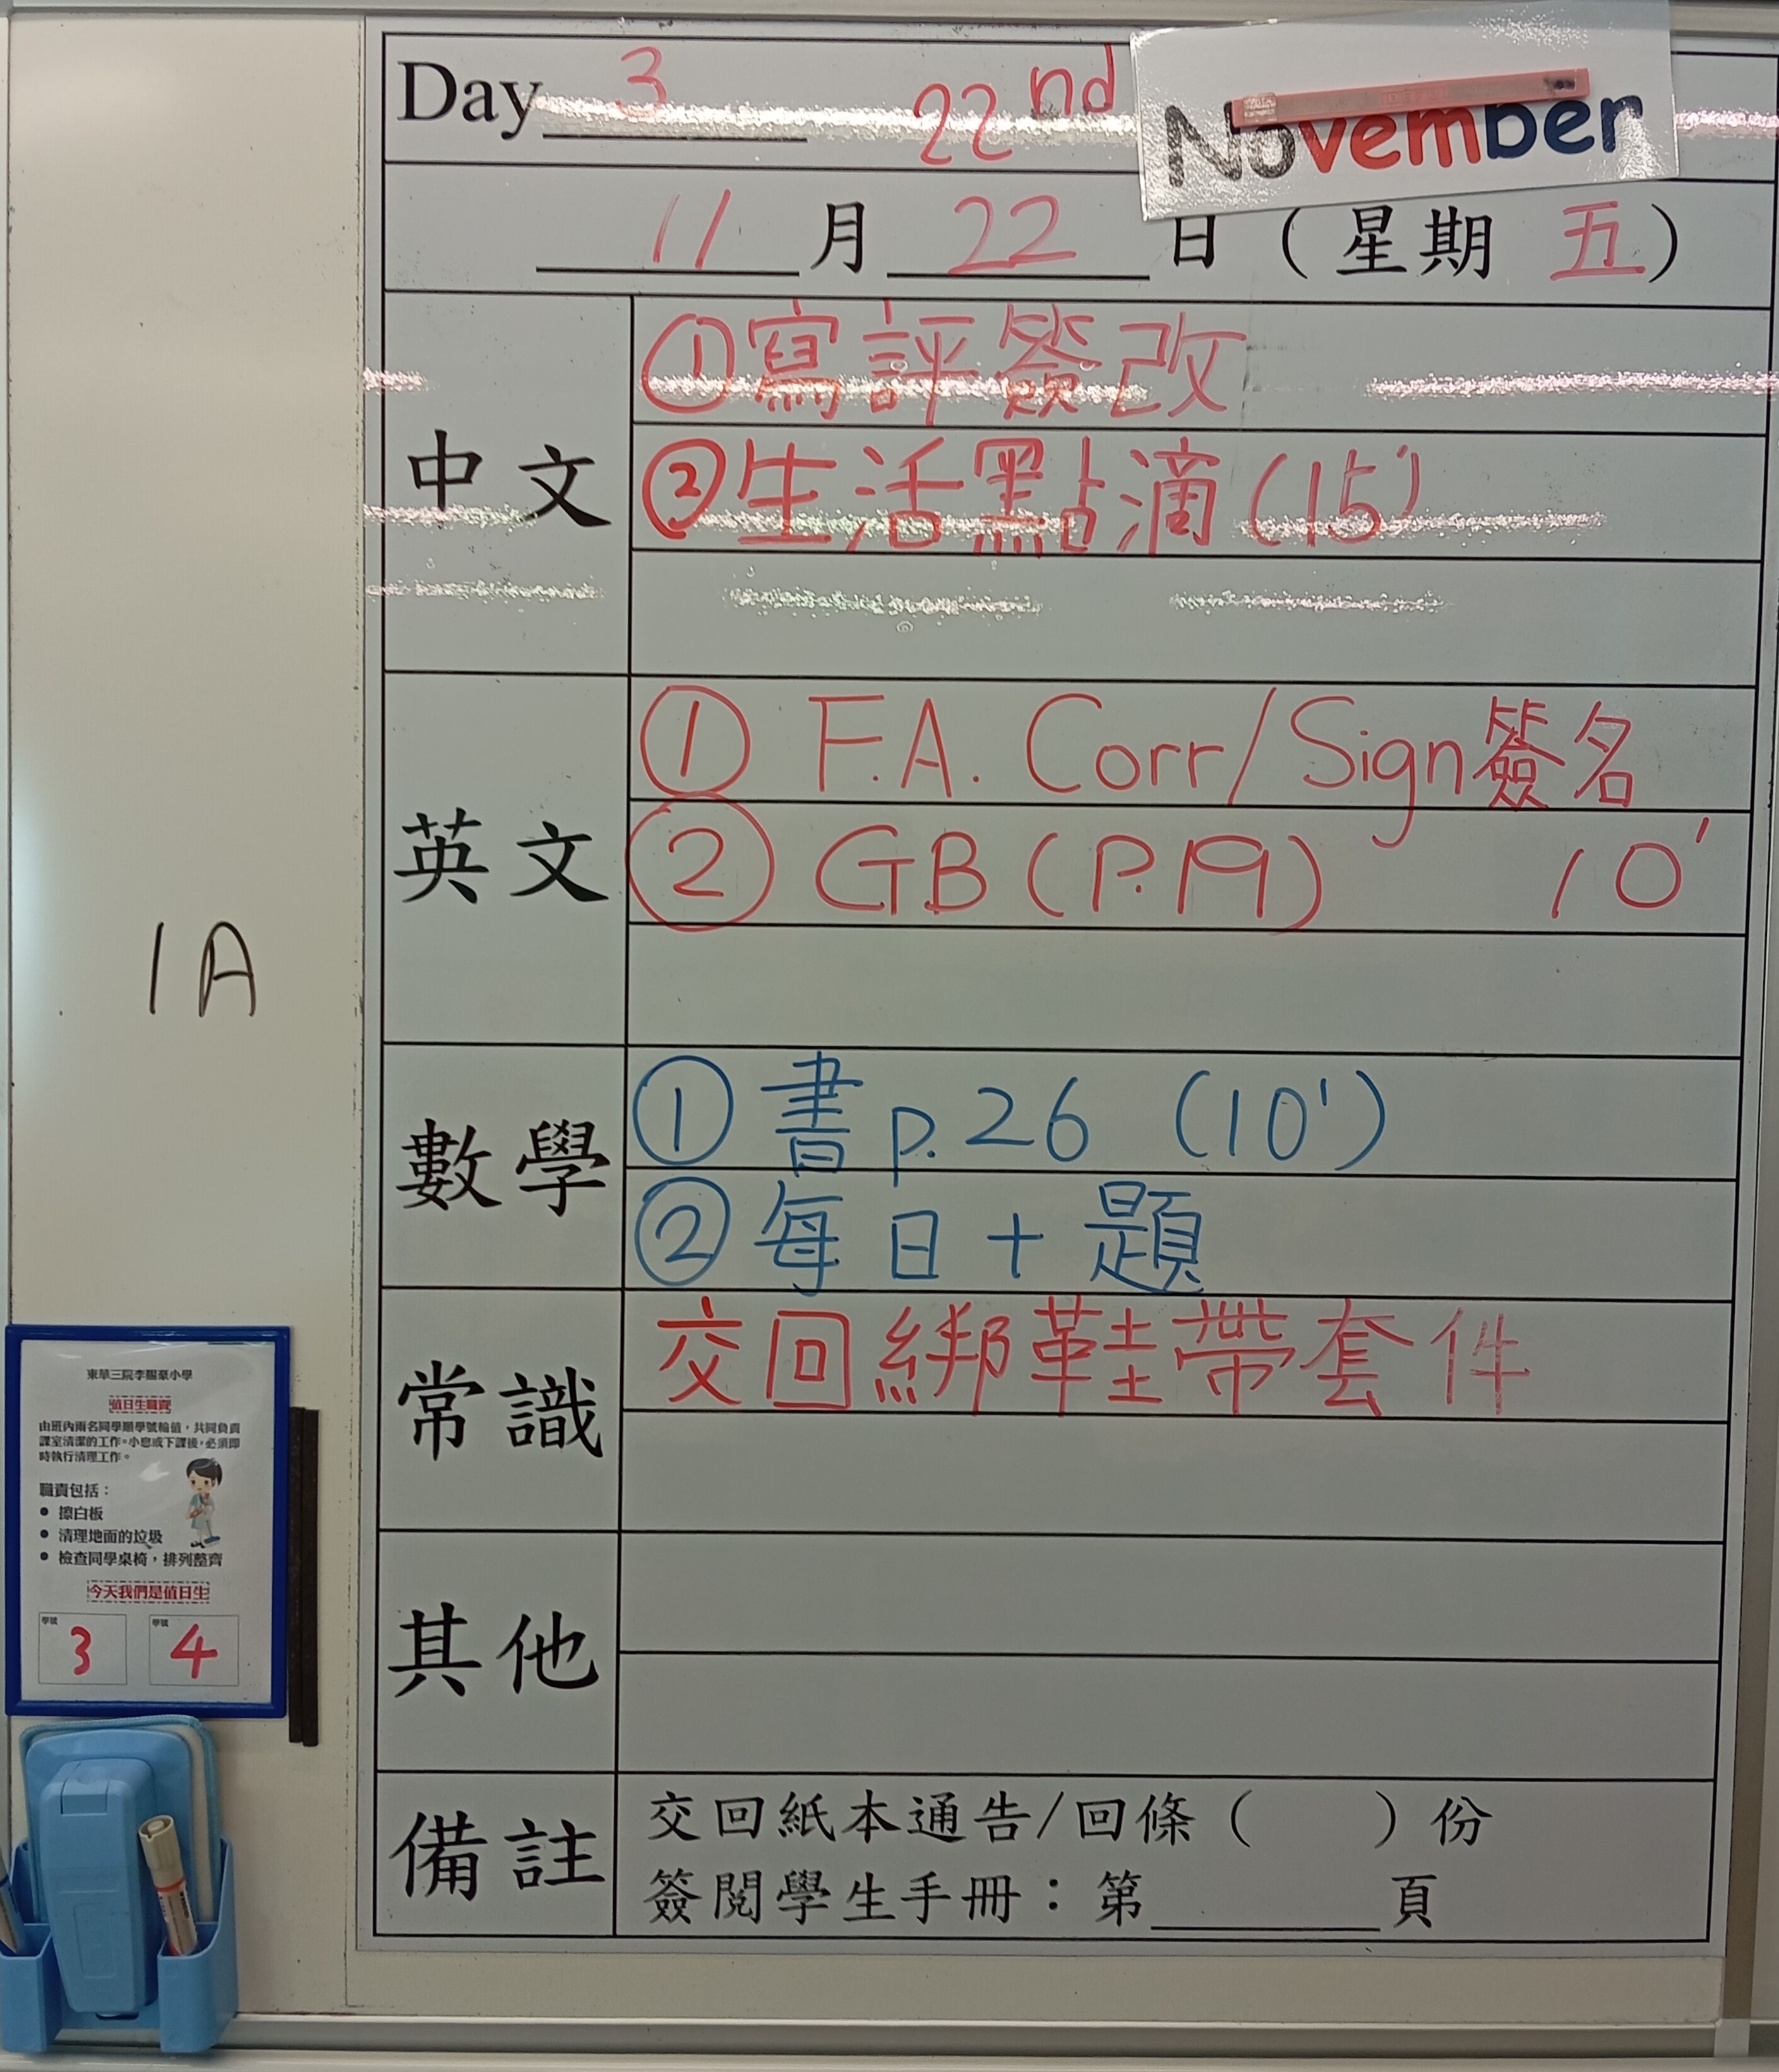 Day 3 22nd November
11 月 22 日 ( 星期 五 )
中文
①寫評簽改
②生活點滴(15')
英文
① F.A. Corr/Sign簽名
② GB (P.19) 10'
1A
數學
① 書 p.26 (10')
② 每日十題
常識
交回綁鞋帶套件
其他
備註
交回紙本通告/回條 ( ) 份
簽閱學生手冊：第______頁
東華三院李賜豪小學
值日生職責
由班內兩名同學順學號輪值，共同負責
課室清潔的工作。小息或下課後，必須即
時執行清理工作。
職責包括：
• 擦白板
• 清理地面的垃圾
• 檢查同學桌椅，排列整齊
今天我們是值日生
學號 3 學號 4